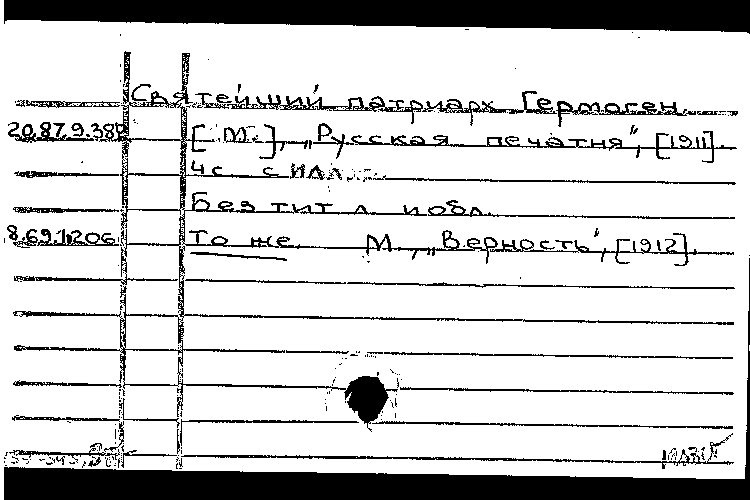 Святейший патриарх Гермоген.
20.87.9.382 [М.], „Русская печатня", [1911].
4с. с илл.
Без тит л. и обл.
8.69.1.206 То же. М., „Верность", [1912].